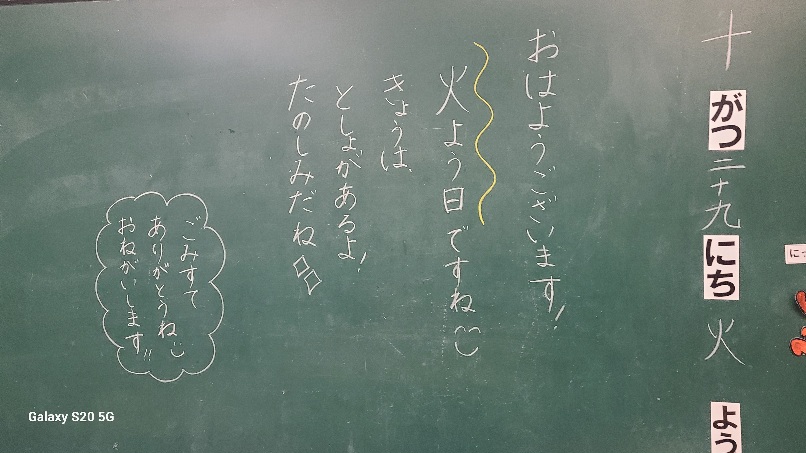 十がつ二十九にち火よう
おはようございます!
火よう日ですね
きょうは、
としょがあるよ!
たのしみだね
ごみすて
ありがとうね
おねがいします!!
にっ
Galaxy S20 5G